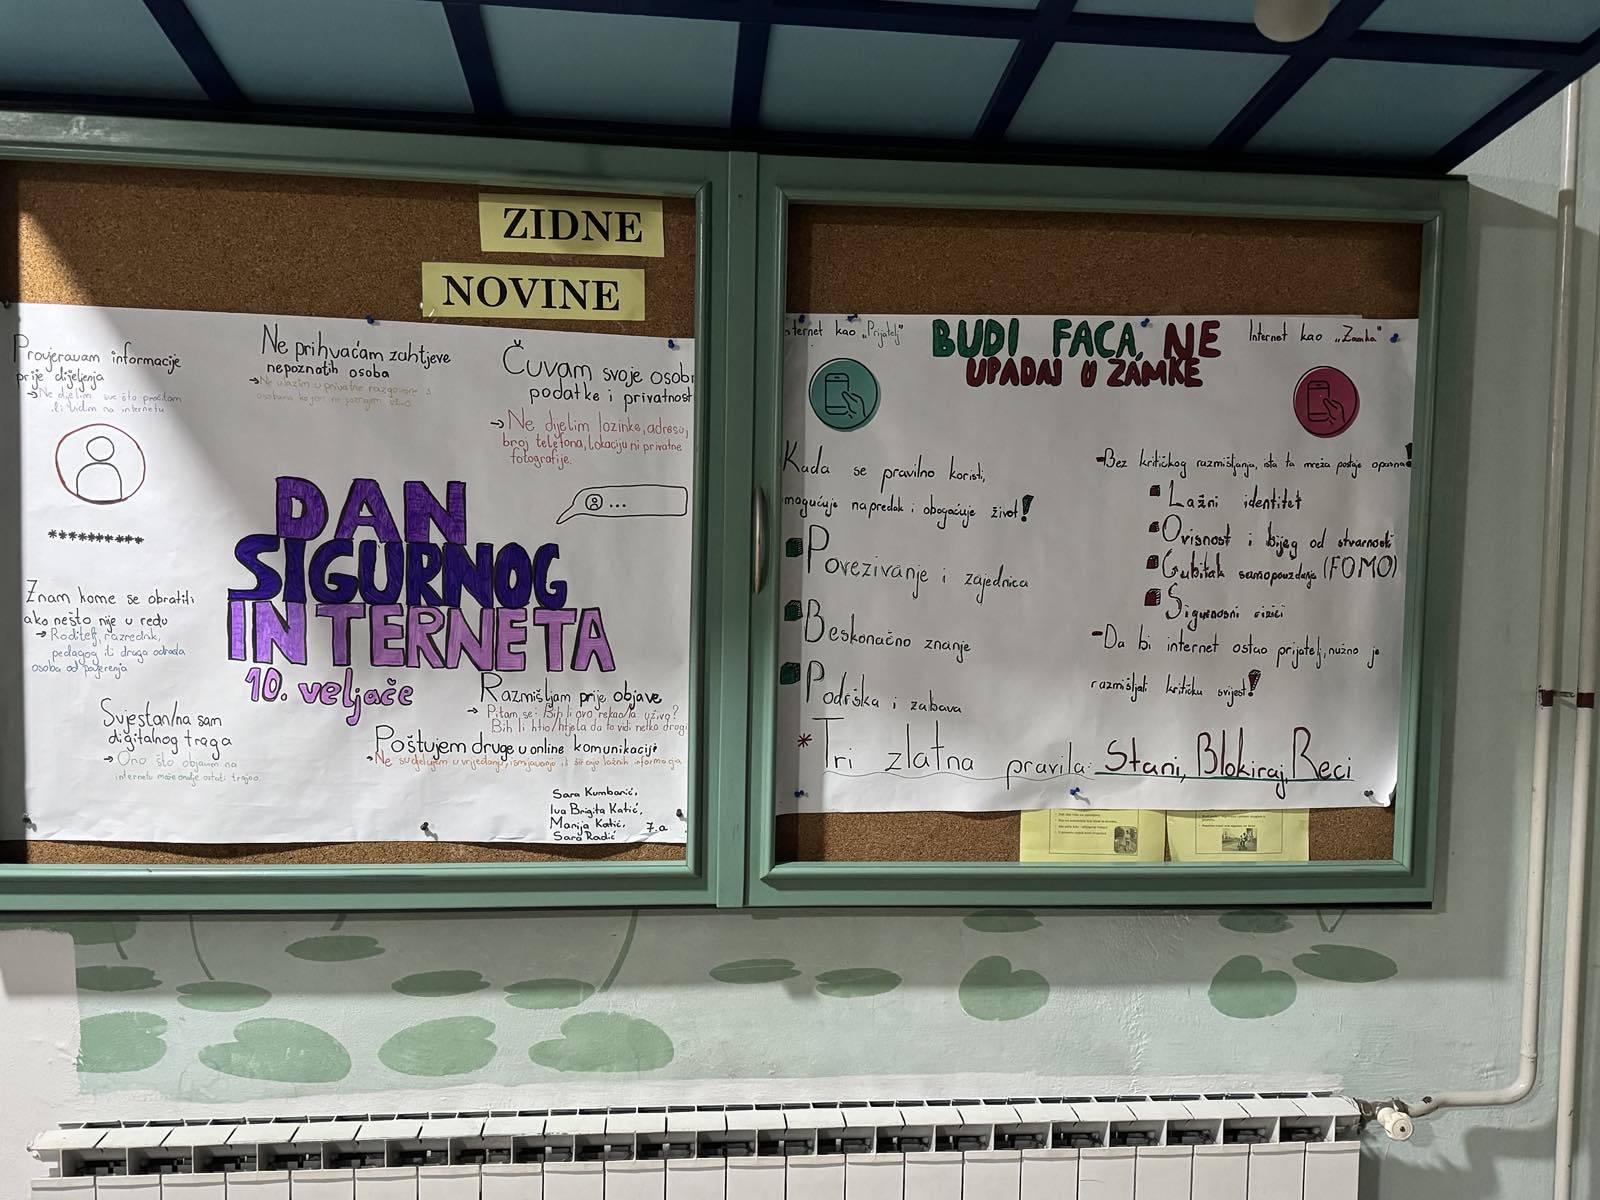 ZIDNE
NOVINE
Provjeravam informacije
prije dijeljenja
→ Ne dijelim sve što pročitam
ili vidim na internetu
Ne prihvaćam zahtjeve
nepoznatih osoba
→ Ne ulazim u privatne razgovore s
osobama koje ne poznajem uživo.
Čuvam svoje osobn
podatke i privatnost
→ Ne dijelim lozinke, adresu,
broj telefona, lokaciju ni privatne
fotografije.
...
**********
DAN
SIGURNOG
INTERNETA
10. veljače
Znam kome se obratiti
ako nešto nije u redu
→ Roditelj, razrednik,
pedagog ili druga odrasla
osoba od povjerenja
Svjestan/na sam
digitalnog traga
→ Ono što objavim na
internetu može ondje ostati trajno.
Razmišljam prije objave
→ Pitam se: Bih li ovo rekao/la uživo?
Bih li htio/htjela da to vidi netko drugi
Poštujem druge u online komunikaciji
→ Ne sudjelujem u vrijeđanju, ismijavanju ili širenju lažnih informacija
Sara Kumbarić,
Iva Brigita Katić,
Marija Katić, 7.a
Sara Radić
nternet kao „Prijatelj"
BUDI FACA, NE
UPADAJ U ZAMKE
Internet kao „Zamka"
Kada se pravilno koristi,
mogućuje napredak i obogaćuje život!
Povezivanje i zajednica
Beskonačno znanje
Podrška i zabava
- Bez kritičkog razmišljanja, ista ta mreža postaje opasna!
Lažni identitet
Ovisnost i bijeg od stvarnosti
Gubitak samopouzdanja (FOMO)
Sigurnosni rizici
- Da bi internet ostao prijatelj, nužno je
razmišljati kritičku svijest!
* Tri zlatna pravila: Stani, Blokiraj, Reci